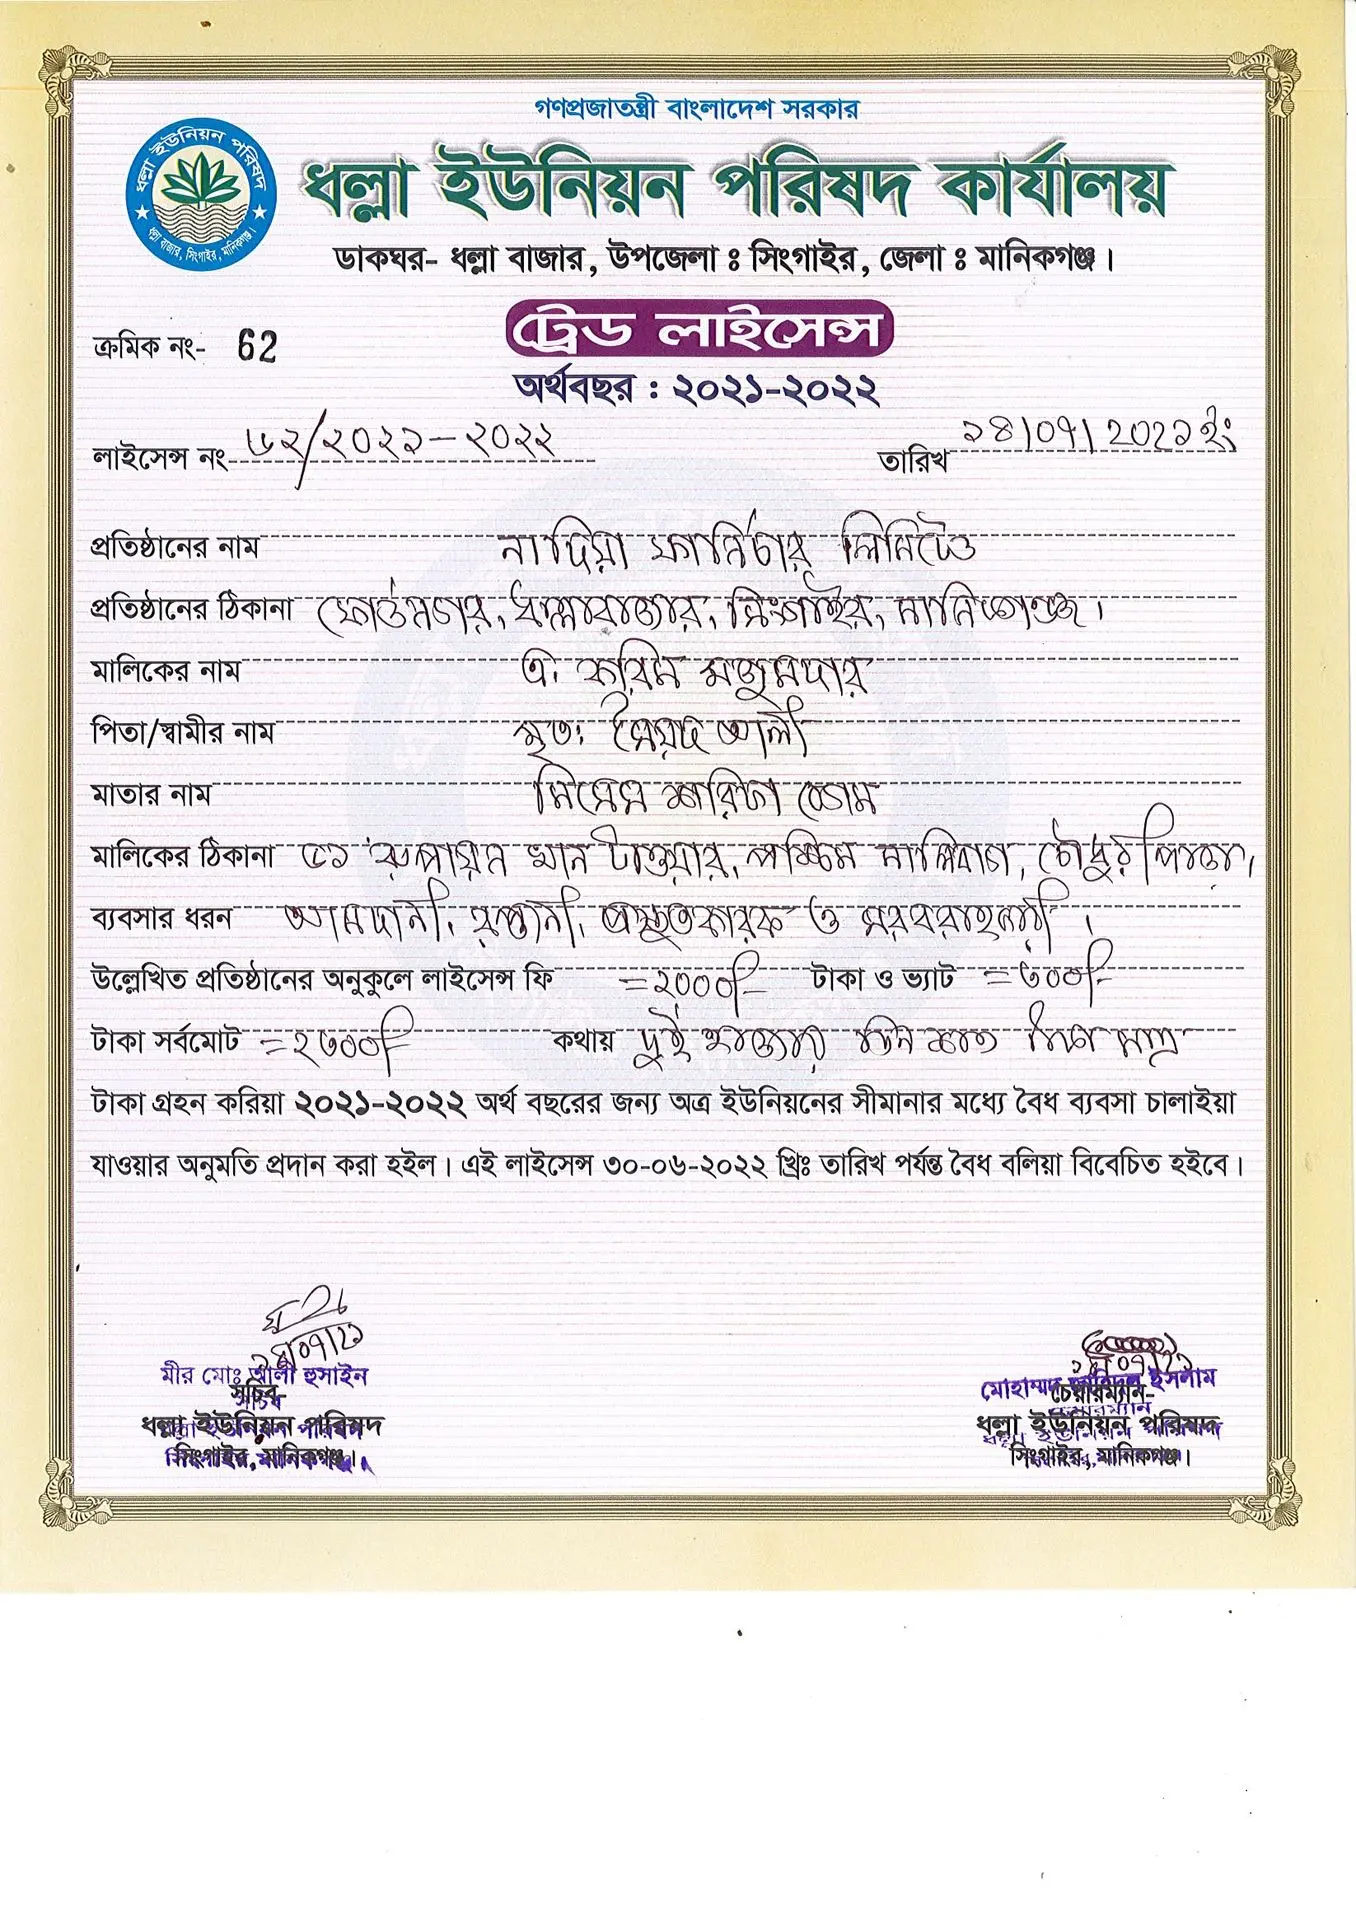 গণপ্রজাতন্ত্রী বাংলাদেশ সরকার
ধল্লা ইউনিয়ন পরিষদ
ধল্লা বাজার, সিংগাইর, মানিকগঞ্জ।
ধল্লা ইউনিয়ন পরিষদ কার্যালয়
ডাকঘর- ধল্লা বাজার, উপজেলা ঃ সিংগাইর, জেলা ঃ মানিকগঞ্জ।
ট্রেড লাইসেন্স
ক্রমিক নং- 62
অর্থবছর : ২০২১-২০২২
লাইসেন্স নং ৬২/২০২১-২০২২ তারিখ ১৪/০৭/২০২১ ইং
প্রতিষ্ঠানের নাম নাদিয়া ফার্নিচার লিমিটেড
প্রতিষ্ঠানের ঠিকানা ফোর্ডনগর, ধল্লাবাজার, সিংগাইর, মানিকগঞ্জ।
মালিকের নাম এ. করিম মজুমদার
পিতা/স্বামীর নাম মৃত: সৈয়দ আলী
মাতার নাম মিসেস বেগম
মালিকের ঠিকানা রুপায়ন খান টাওয়ার, পশ্চিম মালিবাগ, চৌধুরীপাড়া,
ব্যবসার ধরন আমদানী, রপ্তানী, প্রস্তুতকারক ও সরবরাহকারী।
উল্লেখিত প্রতিষ্ঠানের অনুকুলে লাইসেন্স ফি =২০০০/- টাকা ও ভ্যাট =৩০০/-
টাকা সর্বমোট =২৩০০/- কথায় দুই হাজার তিন শত টাকা মাত্র
টাকা গ্রহন করিয়া ২০২১-২০২২ অর্থ বছরের জন্য অত্র ইউনিয়নের সীমানার মধ্যে বৈধ ব্যবসা চালাইয়া
যাওয়ার অনুমতি প্রদান করা হইল। এই লাইসেন্স ৩০-০৬-২০২২ খ্রিঃ তারিখ পর্যন্ত বৈধ বলিয়া বিবেচিত হইবে।
১৪/০৭/২১
মীর মোঃ আলী হুসাইন
সচিব
ধল্লা ইউনিয়ন পরিষদ
সিংগাইর, মানিকগঞ্জ।
১৪/০৭/২১
মোহাম্মদ জাহিদুল ইসলাম
চেয়ারম্যান
ধল্লা ইউনিয়ন পরিষদ
সিংগাইর, মানিকগঞ্জ।